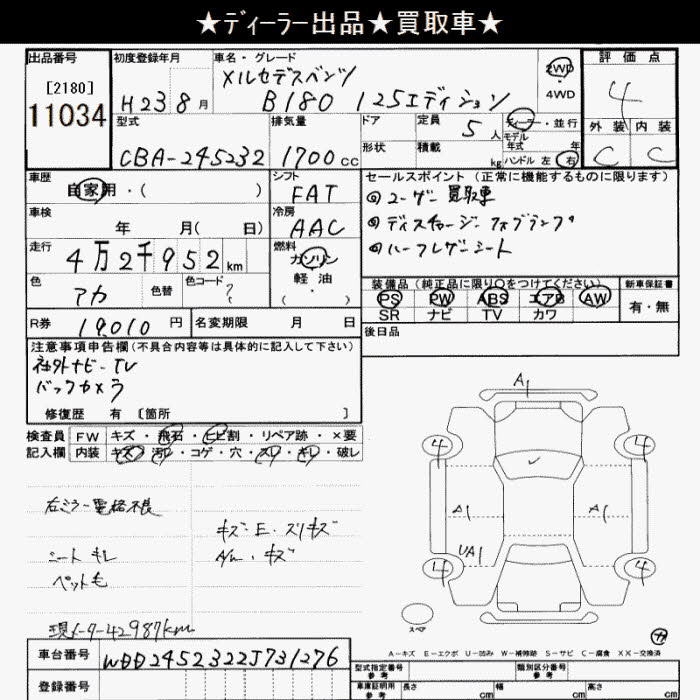 ★ディーラー出品★買取車★
出品番号
[2180]
11034
初度登録年月
H23 8月
車名・グレード
メルセデスベンツ
B180 125エディション
2WD
・
4WD
評価点
4
外装 内装
C C
型式
CBA-245232
排気量
1700cc
ドア
形状
定員
5人
積載
kg
ディーラー・並行
モデル
年式 年
ハンドル 左 右
車歴
自家用・( )
シフト
FAT
車検
年 月( 日)
冷房
AAC
走行
4万2千952km
燃料
ガソリン
軽油
( ・ )
色
アカ
色替
色コード
?
R券
19,010円
名変期限 月 日
セールスポイント(正常に機能するものに限ります)
◎ユーザー買取車
◎ディスチャージ・フォグランプ
◎ハーフレザーシート
装備品(純正品に限り〇をつけてください)
PS PW ABS エアB AW
SR ナビ TV カワ
新車保証書
有・無
後日品
注意事項申告欄(不具合内容等は具体的に記入して下さい)
社外ナビ・TV
バックカメラ
修復歴 有〔箇所 〕
検査員
記入欄
FW キズ・飛石・ヒビ割・リペア跡・×要
内装 キズ・汚れ・コゲ・穴・スレ・キレ・破レ
右ミラー電格不良
シート キレ
ペット毛
キズ・E・スリキズ
A/W・キズ
現メーター42987km
A1
4 4
A1 A1
UA1
4 4
スペア
A-キズ E-エクボ U-凹み W-補修跡 S-サビ C-腐食 XX-交換済
車台番号
WDD2452322J731276
登録番号
型式指定番号
参考
類別区分番号
参考
車庫証明用
参考
長さ cm
幅 cm
高さ cm